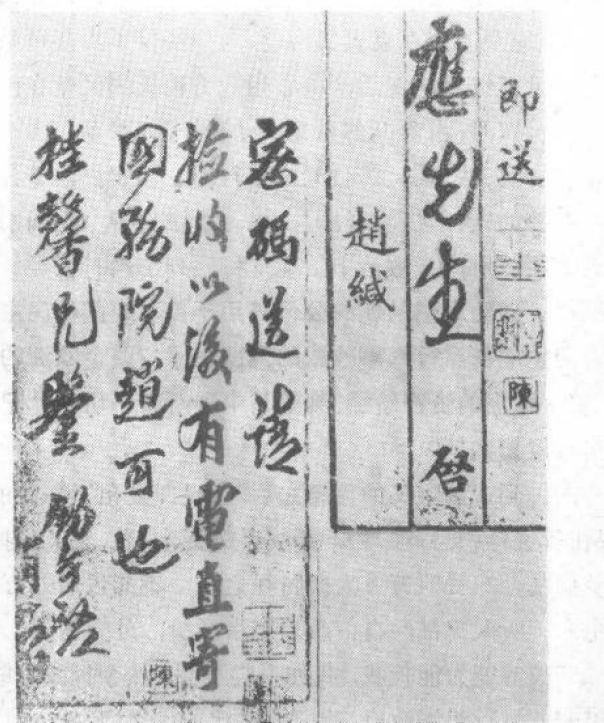 即送
陳
應先生 啓
趙緘
密碼送請
撿收以後有電直寄
國務院趙可也
陳
桂馨兄鑒